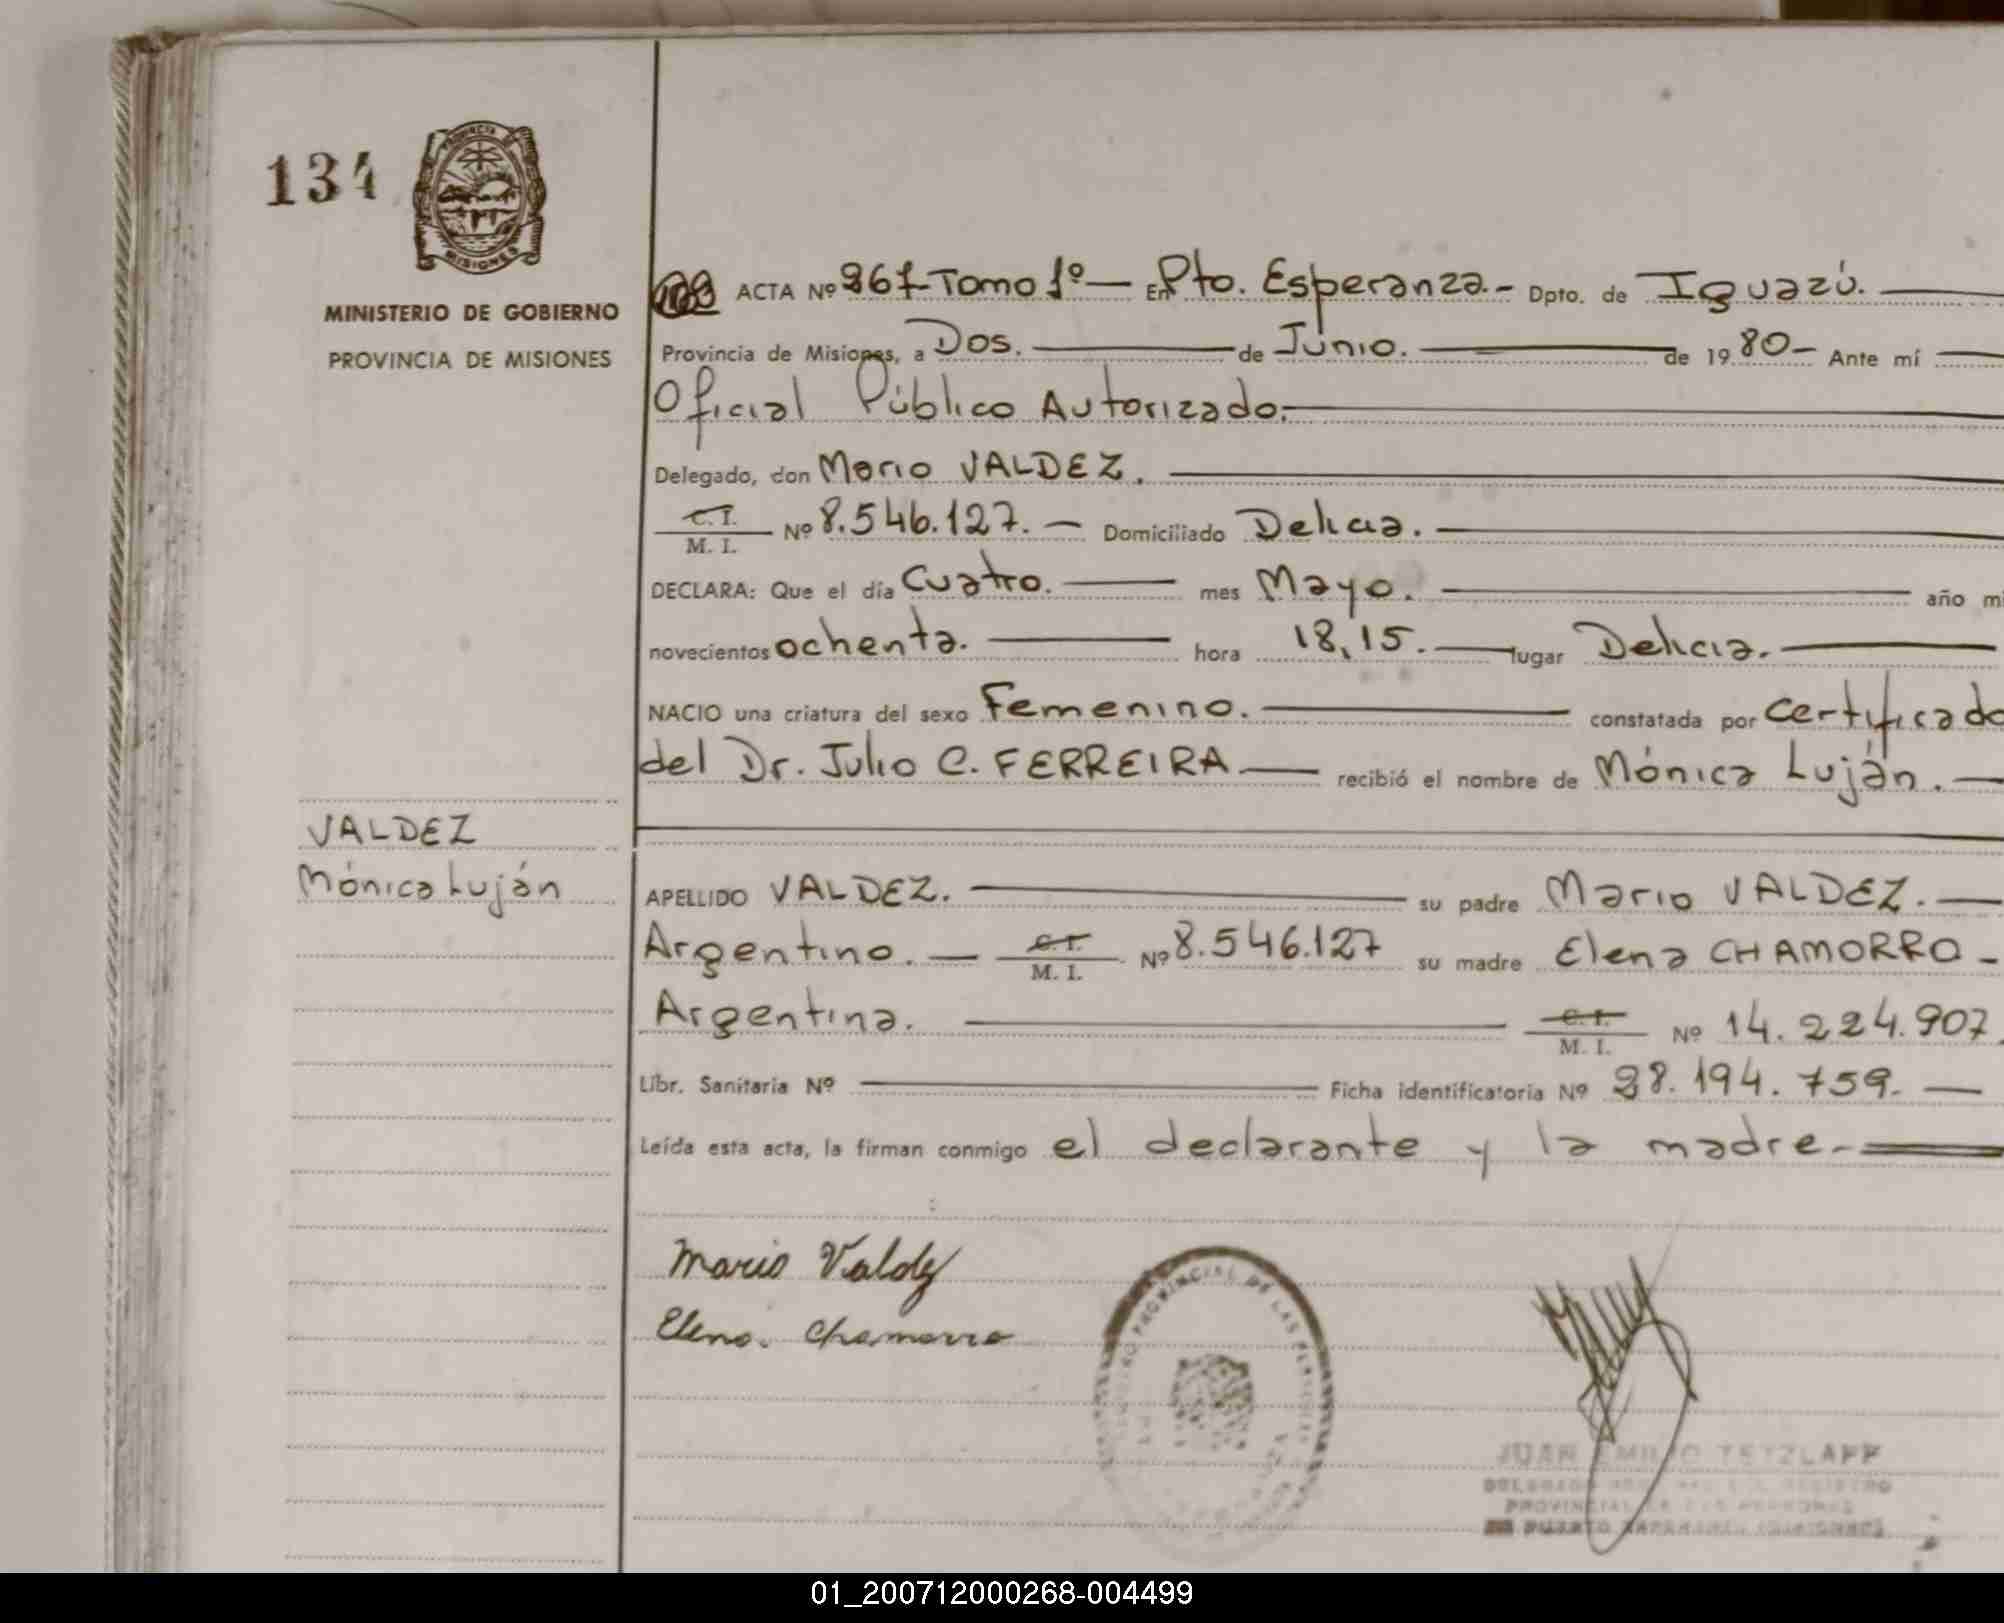 134
PROVINCIA DE
MISIONES
MINISTERIO DE GOBIERNO
PROVINCIA DE MISIONES
ACTA Nº 267 - Tomo 1º — En Pto. Esperanza. - Dpto. de Iguazú.
Provincia de Misiones, a Dos. de Junio. de 1980 - Ante mí
Oficial Público Autorizado.
Delegado, don Mario VALDEZ.
C. I.
M. I. Nº 8.546.127. — Domiciliado Delicia.
DECLARA: Que el día Cuatro. mes Mayo. año mi
novecientos ochenta. hora 18,15. lugar Delicia.
NACIO una criatura del sexo Femenino. constatada por Certificado
del Dr. Julio C. FERREIRA — recibió el nombre de Mónica Luján.
VALDEZ
Mónica Luján
APELLIDO VALDEZ. su padre Mario VALDEZ.
Argentino. — C. I.
M. I. Nº 8.546.127 su madre Elena CHAMORRO -
Argentina. C. I.
M. I. Nº 14.224.907
Libr. Sanitaria Nº — Ficha identificatoria Nº 28.194.759. —
Leída esta acta, la firman conmigo el declarante y la madre.
Mario Valdez
Elena Chamorro
PROVINCIAL DE LAS
JUAN EMILIO TETZLAFF
PROVINCIAL DE LAS PERSONAS
01_200712000268-004499